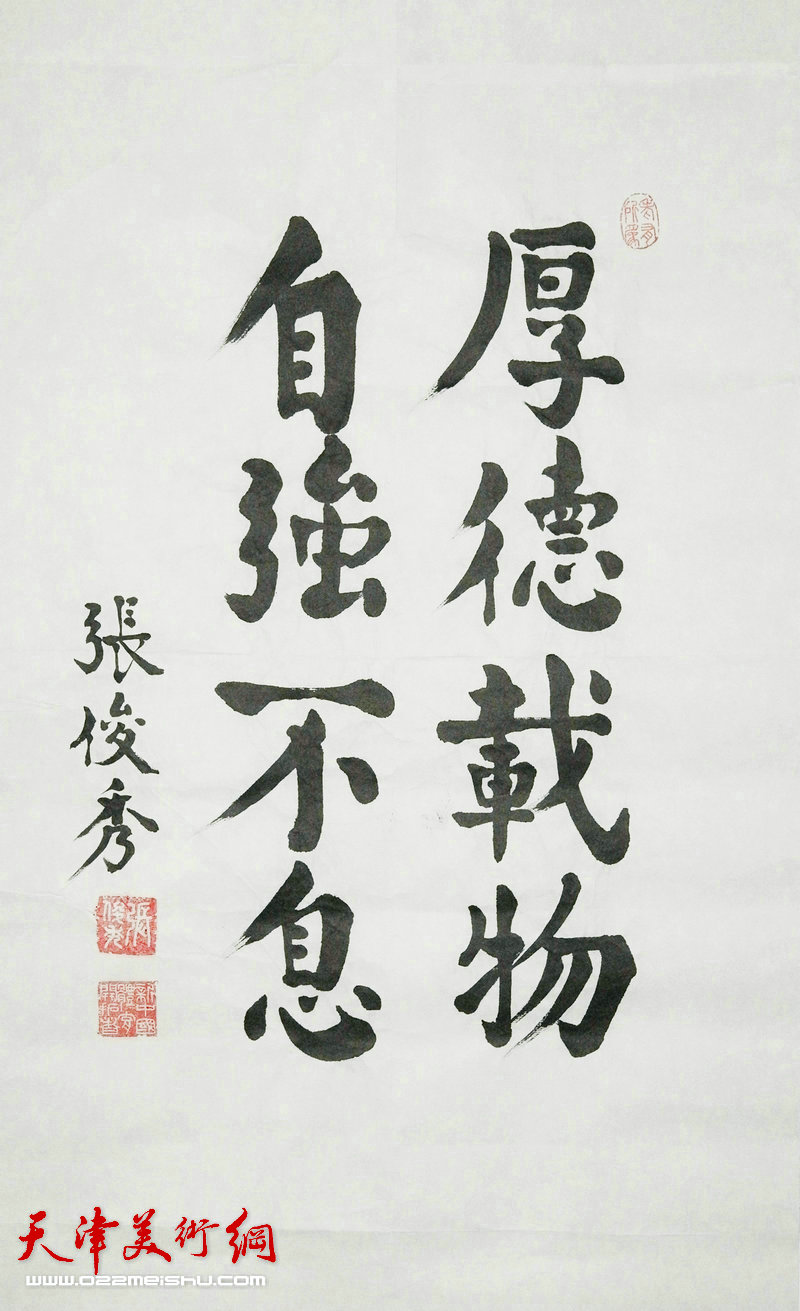 厚德載物
自強不息
張俊秀
天津美術網
www.022meishu.com